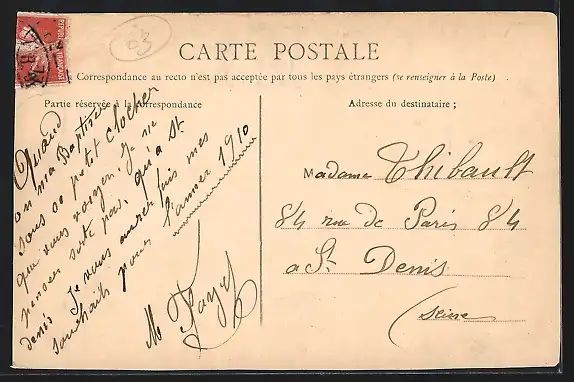 83
CARTE POSTALE
La Correspondance au recto n'est pas acceptée par tous les pays étrangers (se renseigner à la Poste)
Partie réservée à la Correspondance
Adresse du destinataire ;
Quand
on m'a Baptisée
sous ce petit clocher
que vous voyez. Je ne
pensez sorte pas, qu'à St
denis Je vous aurez fais mes
souhaits pour l'année 1910
M Fayel
Madame Thibault
84 rue de Paris 84
a St Denis
(Seine